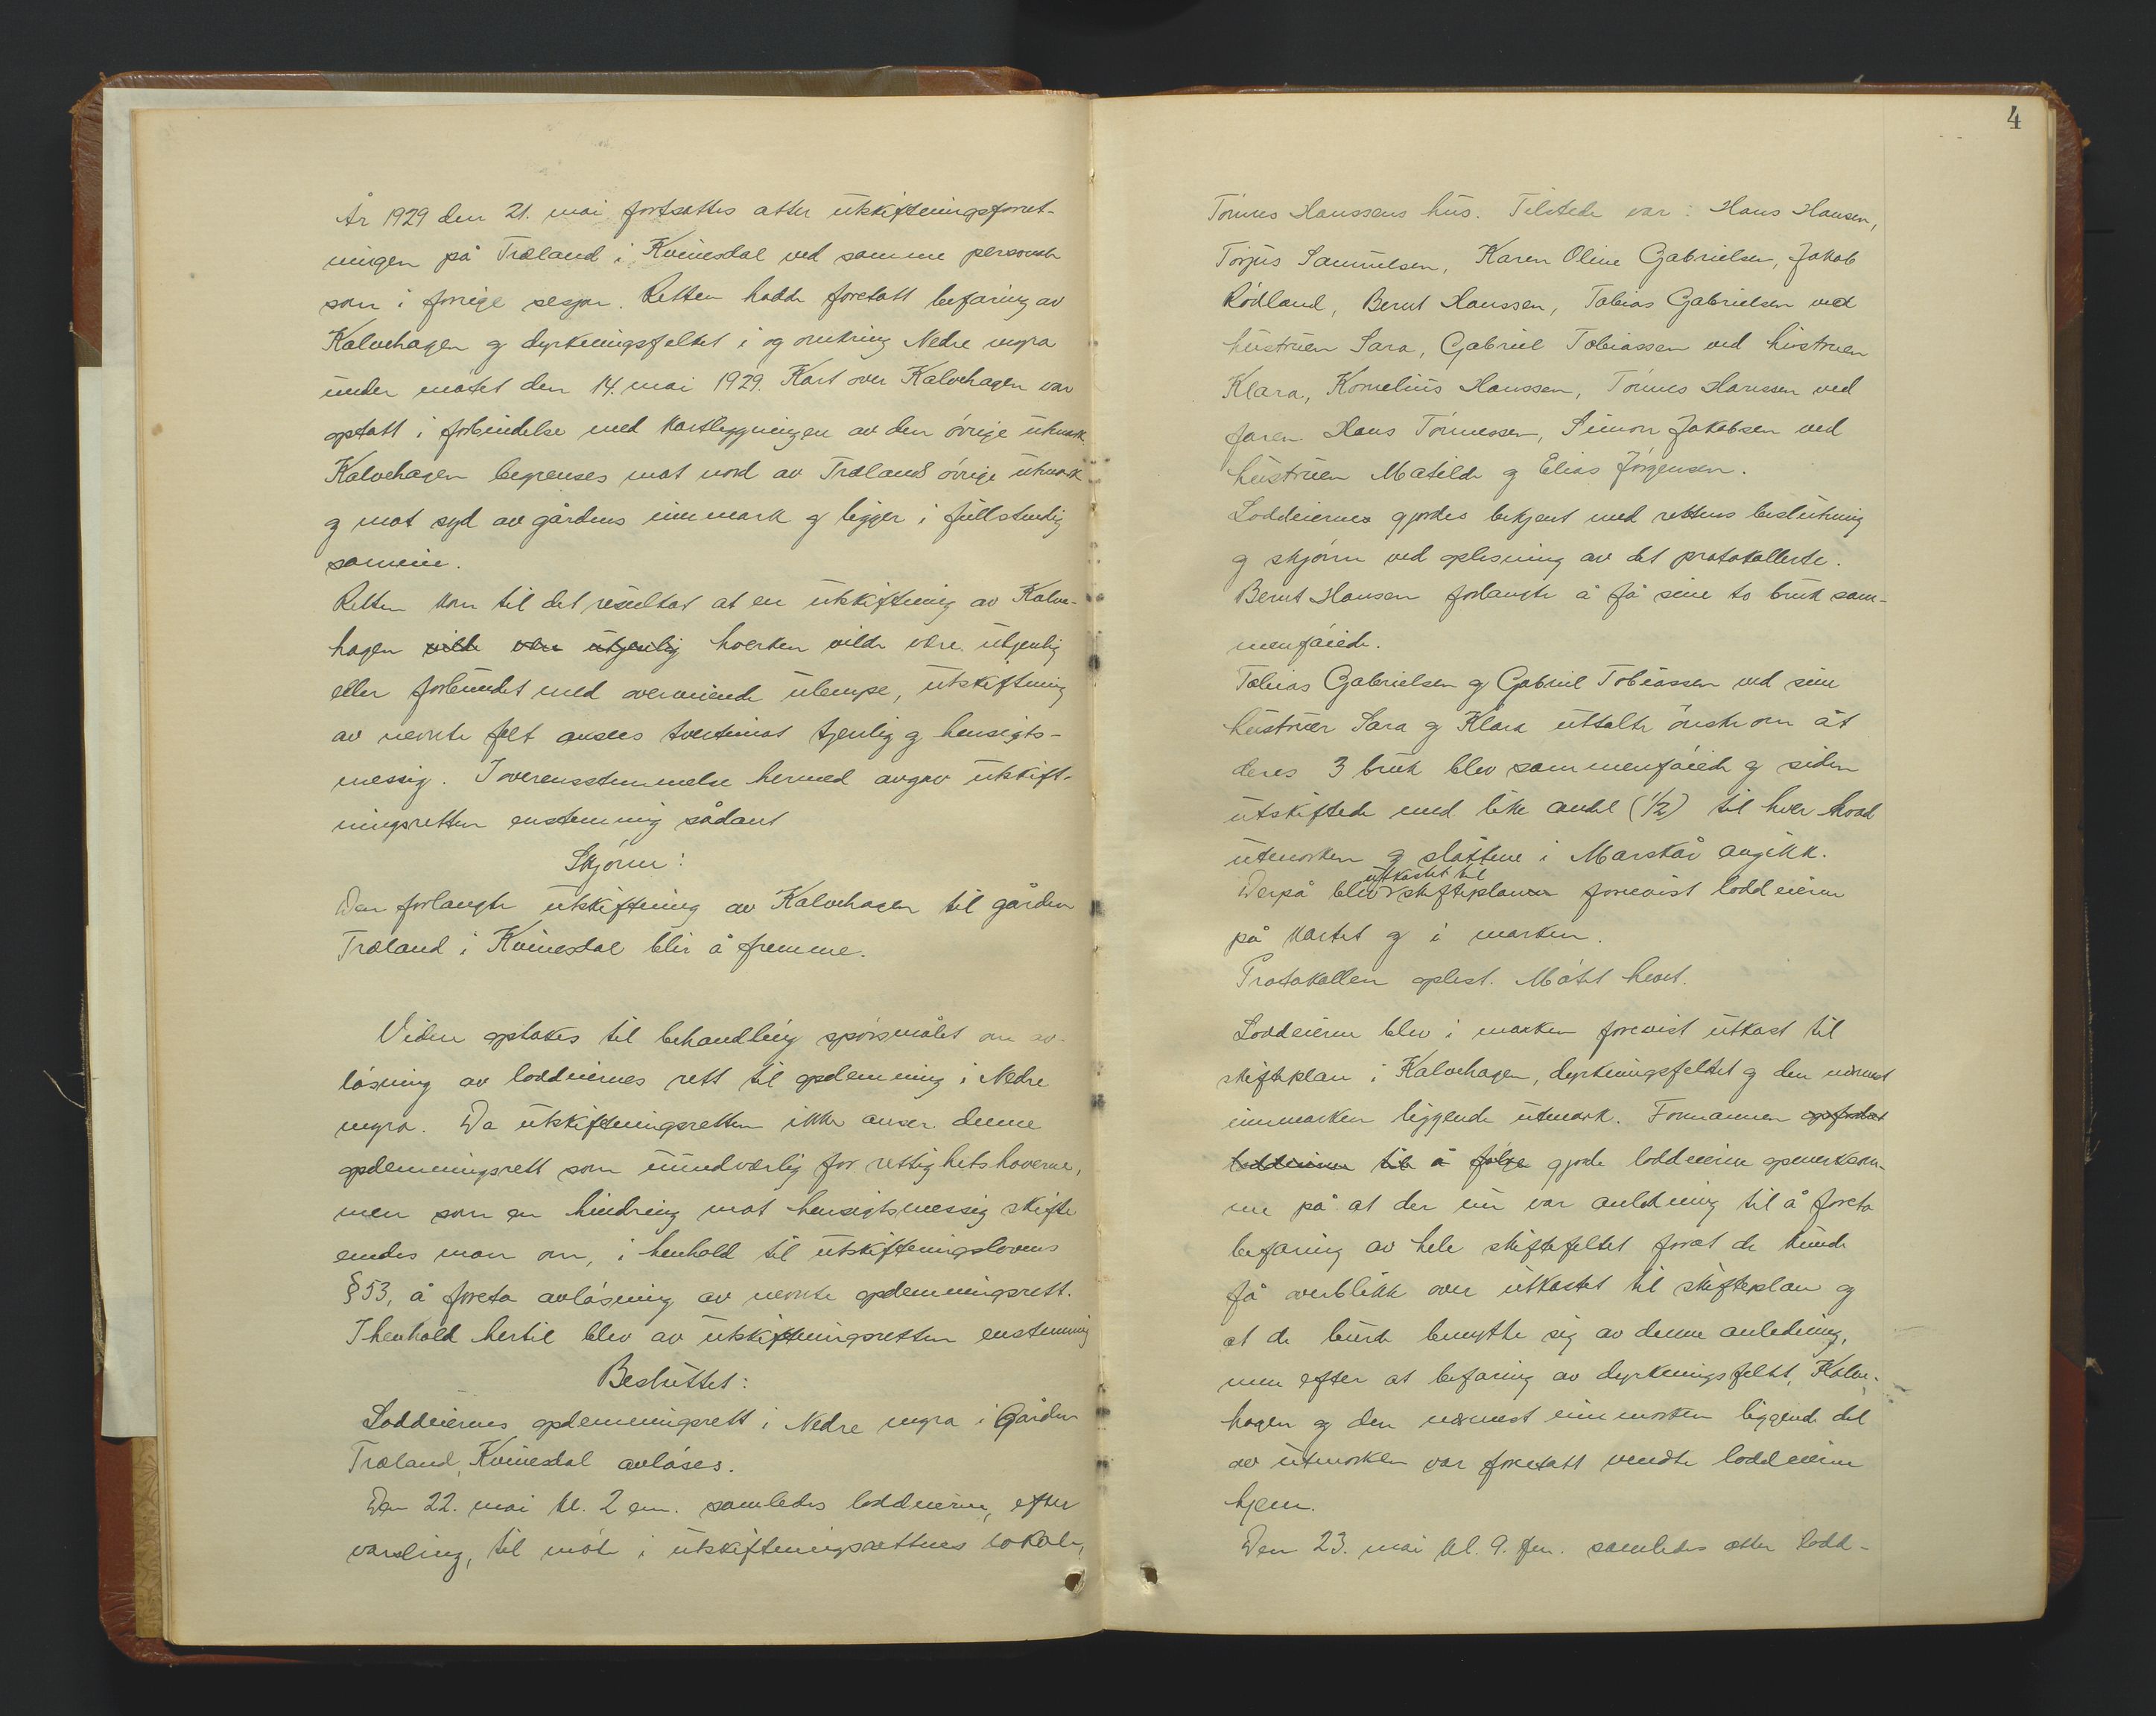 År 1929 den 21. mai fortsattes atter utskiftningsforret-
ningen på Træland i Kvinesdal ved samme personale
som i forrige sesjon. Retten hadde foretatt befaring av
Kalvehagen og dyrkningsfeltet i og omkring Nedre myra
under møtet den 14. mai 1929. Kart over Kalvehagen var
optatt i forbindelse med kartleggningen av den øvrige utmark.
Kalvehagen begrenses mot nord av Trælands øvrige utmark
og mot syd av gårdens innmark og ligger i fullstendig
sameie.
Retten kom til det resultat at en utskiftning av Kalve-
hagen vilde være utjenlig hverken vilde være utjenlig
eller forbundet med overveiende ulempe, utskiftning
av nevnte felt ansees tvertimot tjenlig og hensigts-
messig. I overensstemmelse hermed avgav utskift-
ningsretten enstemmig sådant
Skjønn:
Den forlangte utskiftning av Kalvehagen til gården
Træland i Kvinesdal blir å fremme.
Viden optakes til behandling spørsmålet om av-
løsning av loddeiernes rett til opdemning i Nedre
myra. Da utskiftningsretten ikke anser denne
opdemningsrett som uundværlig for rettighetshaverne,
men som en hindring mot hensigtsmessig skifte
endes man om, i henhold til utskiftningslovens
§ 53, å foreta avløsning av nevnte opdemningsrett.
I henhold hertil blev av utskiftningsretten enstemmig
Besluttet:
Loddeiernes opdemningsrett i Nedre myra i Gården
Træland, Kvinesdal avløses.
Den 22. mai kl. 2 em. samledes loddeierne, efter
varsling, til møte i utskiftningsrettens lokale,
4
Tønnes Hanssens hus. Tilstede var: Hans Hansen,
Torjus Samuelsen, Karen Oline Gabrielsen, Jakob
Rødland, Bernt Hanssen, Tobias Gabrielsen ved
hustruen Sara, Gabriel Tobiassen ved hustruen
Klara, Kornelius Hanssen, Tønnes Hanssen ved
faren Hans Tønnessen, Simon Jakobsen ved
hustruen Matilde og Elias Jørgensen.
Loddeierne gjordes bekjent med rettens beslutning
og skjønn ved oplesning av det protokollerte.
Bernt Hansen forlangte å få sine to bruk sam-
menføiede.
Tobias Gabrielsen og Gabriel Tobiassen ved sine
hustruer Sara og Klara uttalte ønske om at
deres 3 bruk blev sammenføiede og siden
utskiftede med like andel (1/2) til hver hvad
utmarken og slåttene i Marskår angikk.
Derpå blev utkastet til skifteplanen forevist loddeierne
på kartet og i marken.
Protokollen oplest. Møtet hevet.
Loddeierne blev i marken forevist utkast til
skifteplan i Kalvehagen, dyrkningsfeltet og den nærmest
innmarken liggende utmark. Formannen opfordret
loddeierne til å følge gjorde loddeierne opmerksom-
me på at der nu var anledning til å foreta
befaring av hele skiftefeltet forat de kunde
få overblikk over utkastet til skifteplan og
at de burde benytte sig av denne anledning,
men efter at befaring av dyrkningsfeltet, Kalve-
hagen og den nærmest innmarken liggende del
av utmarken var foretatt vendte loddeierne
hjem.
Den 23. mai kl. 9. fm. samledes atter lodd-